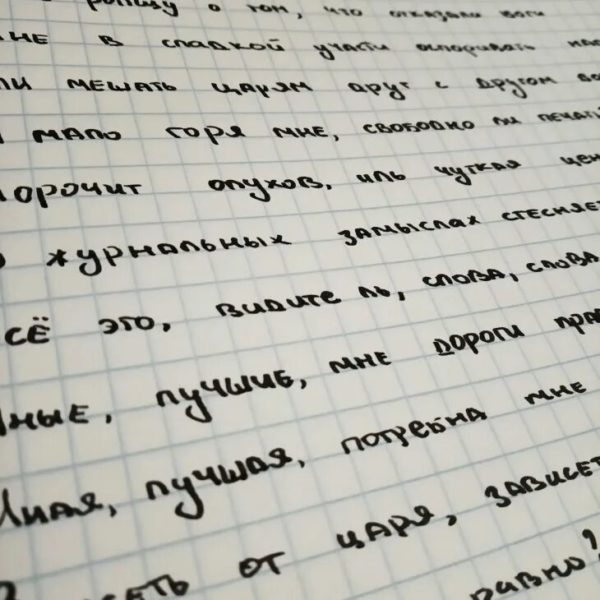 ропщу о том, что отказали боги
мне в сладкой участи оспоривать нал
ли мешать царям друг с другом во
и мало горя мне, свободно ли печать
морочит олухов, иль чуткая цен
в журнальных замыслах стесняет
всё это, видите ль, слова, слова
Иные, лучшие, мне дороги пра
Иная, лучшая, потребна мне
от царя, зависет
равно?